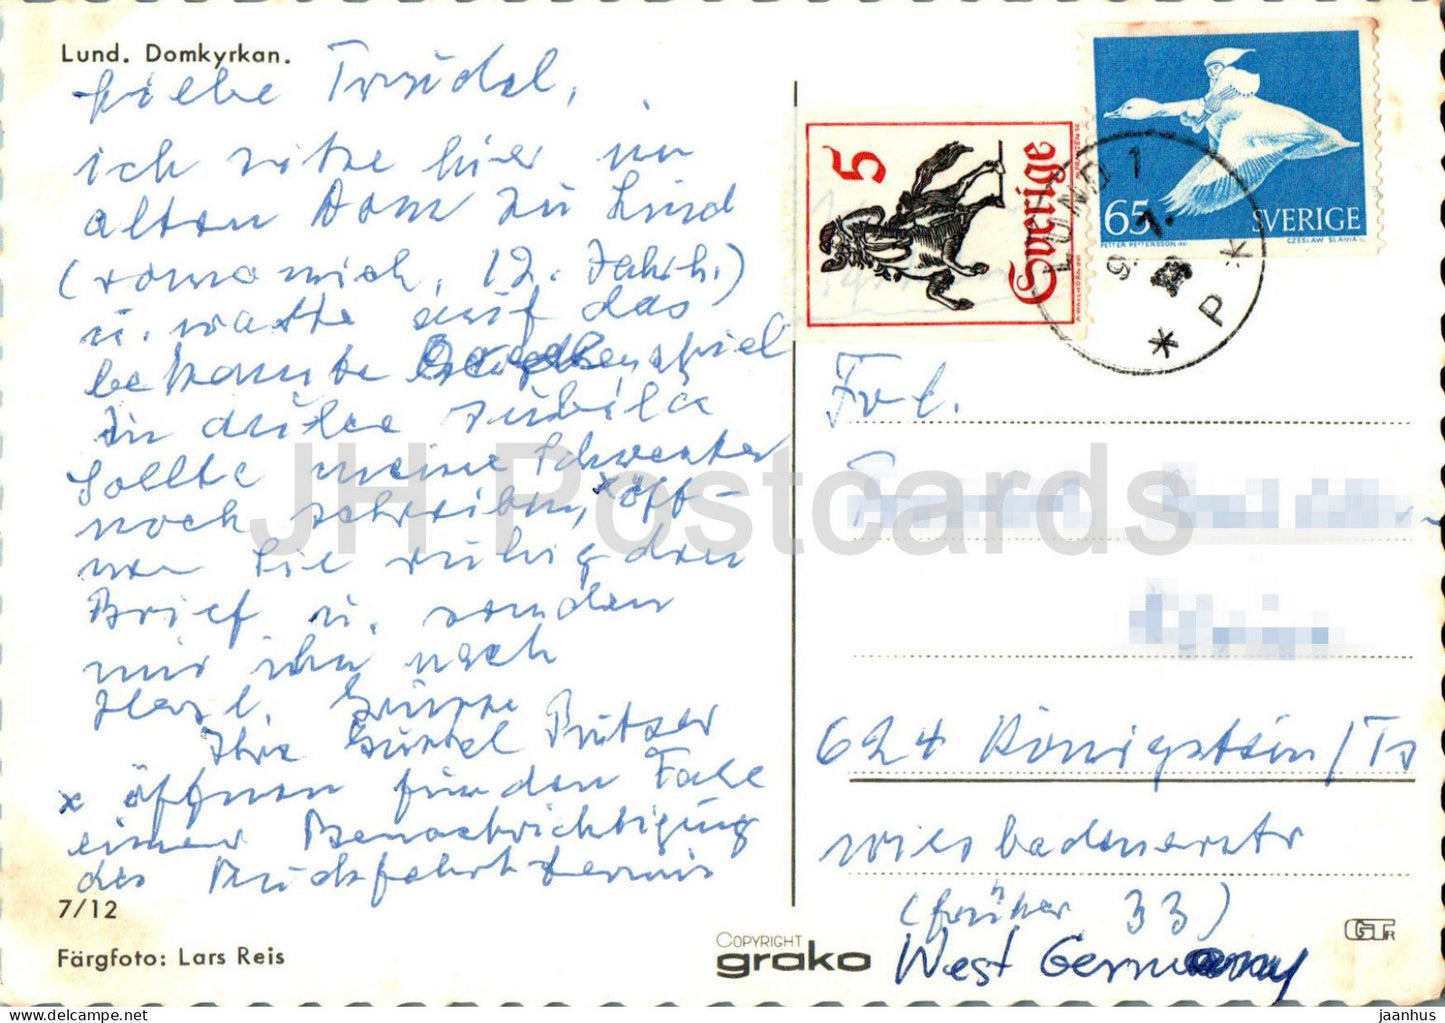 Lund. Domkyrkan.
Liebe Traudel,
ich sitze hier im
alten Dom zu Lund
(romanisch, 12. Jahrh.)
u. warte auf das
bekannte spiel
In dulce jubilo
Sollte meine Schwester
noch schreiben, x öff-
nen Sie ruhig den
Brief u. senden
mir ihn nach
Herzl. Grüsse
Ihre Gürtel Putzer
x öffnen für den Fall
einer Benachrichtigung
des Rückfahrttermins
7/12
Färgfoto: Lars Reis
COPYRIGHT
grako
5
Sverige
65
SVERIGE
PETTER PETTERSSON del.
CZESLAW SLANIA sc.
LUND 1
* P *
Frl.
624 Königstein/Ts
Wiesbadenerstr
(früher 33)
West Germany
GT
JH Postcards
jaanhus